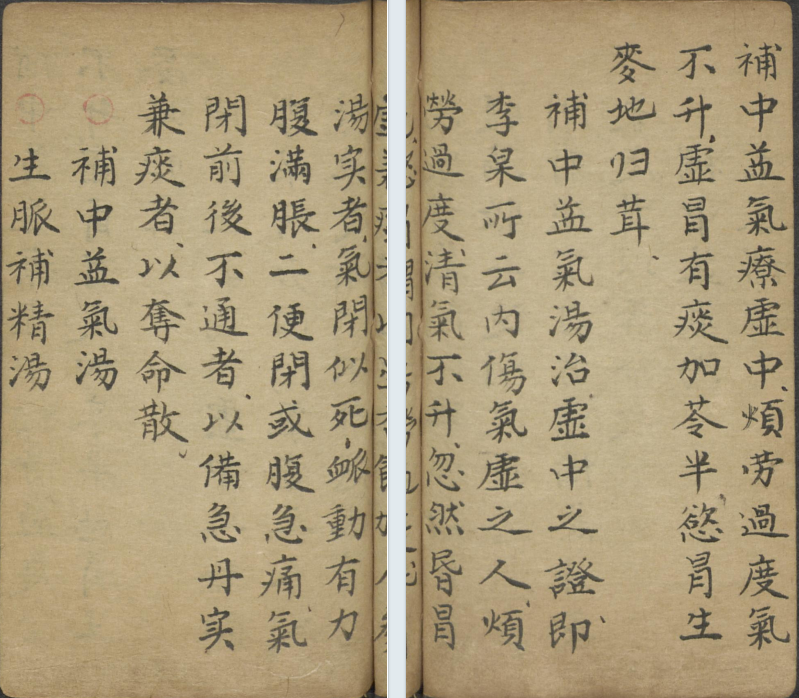 補中益氣療虛中煩劳過度氣
不升虛冒有痰加苓半慾冒生
麥地归茸
補中益氣湯治虛中之證即
李杲所云内傷氣虛之人煩
勞過度清氣不升忽然昏冒
湯実者氣閉似死脈動有力
腹滿脹二便閉或腹急痛氣
閉前後不通者以備急丹实
兼痰者以奪命散
補中益氣湯
生脈補精湯